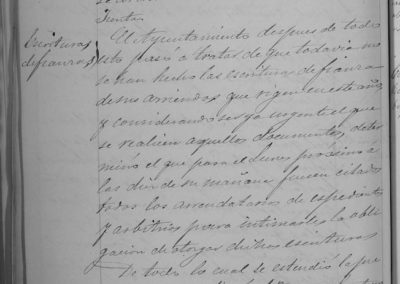 Junta.
Escrituras
de fianzas
El Ayuntamiento despues de todo
esto pasó a tratar de que todavia no
se han hecho las escrituras de fianza
de sus arriendos que rigen en este año,
y considerando ser ya urgente el que
se realicen aquellos documentos, deter
minó el que para el lunes próximo á
las diez de su mañana fuesen citados
todos los arrendatarios de espediente
y arbitrios para intimarles la obli
gacion de otorgar dichas escrituras
De todo lo cual se estendió la pre